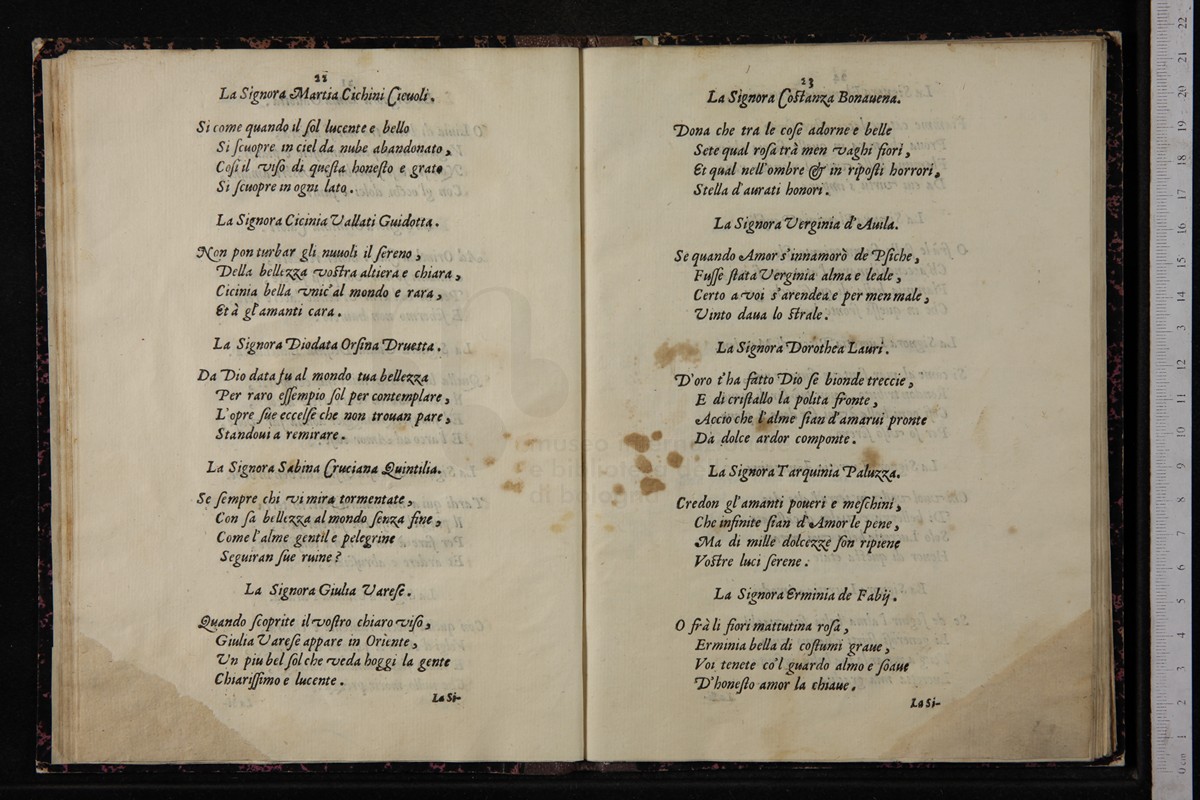 22
La Signora Martia Cichini Cieuoli.
Si come quando il sol lucente e bello
Si scuopre in ciel da nube abandonato,
Cosi il viso di questa honesto e grato
Si scuopre in ogni lato.
La Signora Cicinia Vallati Guidotta.
Non pon turbar gli nuuoli il sereno,
Della bellezza vostra altiera e chiara,
Cicinia bella vnic'al mondo e rara,
Et à gl'amanti cara.
La Signora Diodata Orsina Druetta.
Da Dio data fu al mondo tua bellezza
Per raro essempio sol per contemplare,
L'opre sue eccelse che non trouan pare,
Standoui a remirare.
La Signora Sabina Cruciana Quintilia.
Se sempre chi vi mira tormentate,
Con sa bellezza al mondo senza fine,
Come l'alme gentil e pelegrine
Seguiran sue ruine?
La Signora Giulia Varese.
Quando scoprite il vostro chiaro viso,
Giulia Varese appare in Oriente,
Vn piu bel sol che veda hoggi la gente
Chiarissimo e lucente.
La Si-
23
La Signora Costanza Bonauena.
Dona che tra le cose adorne e belle
Sete qual rosa trà men vaghi fiori,
Et qual nell'ombre & in riposti horrori,
Stella d'aurati honori.
La Signora Verginia d'Auila.
Se quando Amor s'innamorò de Psiche,
Fusse stata Verginia alma e leale,
Certo a voi s'arendea e per men male,
Vinto daua lo strale.
La Signora Dorothea Lauri.
D'oro t'ha fatto Dio se bionde treccie,
E di cristallo la polita fronte,
Accio che l'alme sian d'amarui pronte
Da dolce ardor componte.
La Signora Tarquinia Paluzza.
Credon gl'amanti poueri e meschini,
Che infinite sian d'Amor le pene,
Ma di mille dolcezze son ripiene
Vostre luci serene.
La Signora Erminia de Fabij.
O frà li fiori mattutina rosa,
Erminia bella di costumi graue,
Voi tenete co'l guardo almo e soaue
D'honesto amor la chiaue.
La Si-